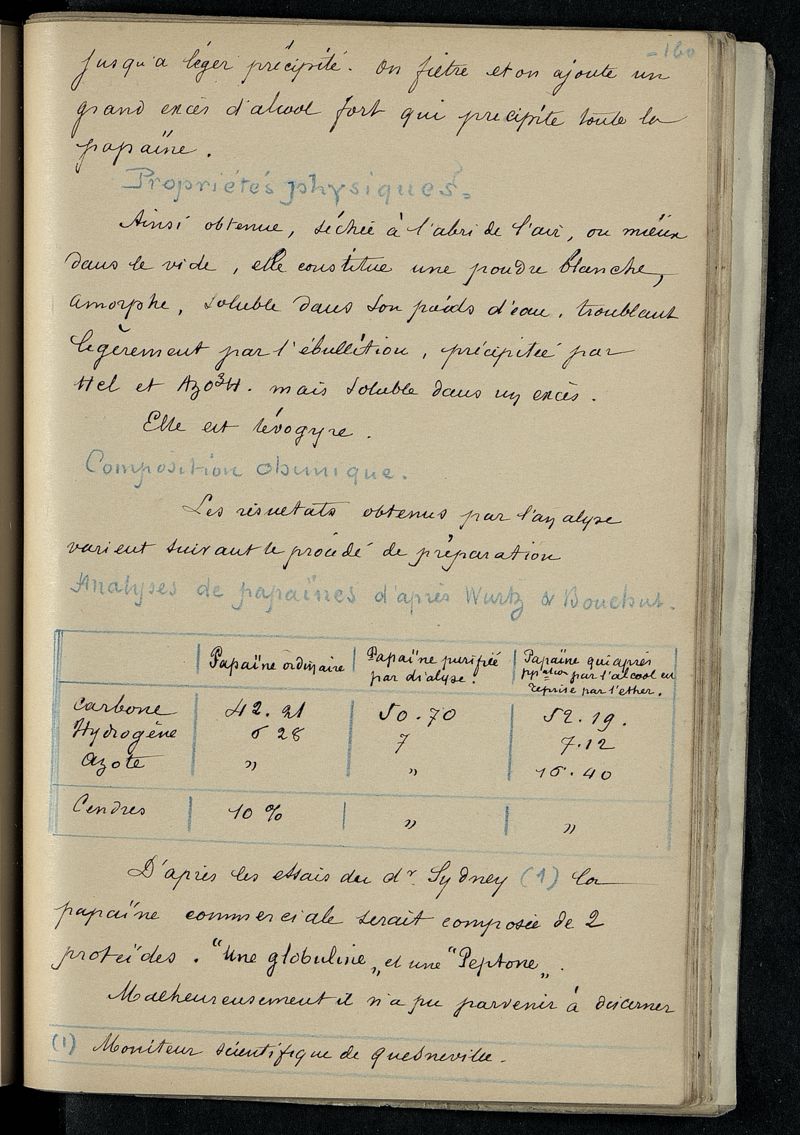 - 160
jusqu'a léger précipité. On filtre et on ajoute un
grand excès d'alcool fort qui precipite toute la
papaïne.
Propriétés physiques.
Ainsi obtenue, séchée à l'abri de l'air, ou mieux
dans le vide, elle constitue une poudre blanche,
amorphe, soluble dans son poids d'eau, troublant
legèrement par l'ébullition, précipitée par
Hcl et Azo³H. mais soluble dans un excès.
Elle est lévogyre.
Composition chimique.
Les résultats obtenus par l'analyse
varient suivant le procédé de préparation
Analyses de papaïnes d'après Wurtz & Bouchut.
Papaïne ordinaire Papaïne purifiée Papaïne qui après
par dialyse. ppation par l'alcool est
reprise par l'ether.
Carbone 42.21 50.70 52.19.
Hydrogène 6 28 7 7.12
Azote " " 16.40
Cendres 10 % " "
D'après les essais du dr Sydney (1) la
papaïne commerciale serait composée de 2
proteïdes. "Une globuline„ et une "Peptone„.
Malheureusement il n'a pu parvenir à discerner
(1) Moniteur scientifique de Quesneville.